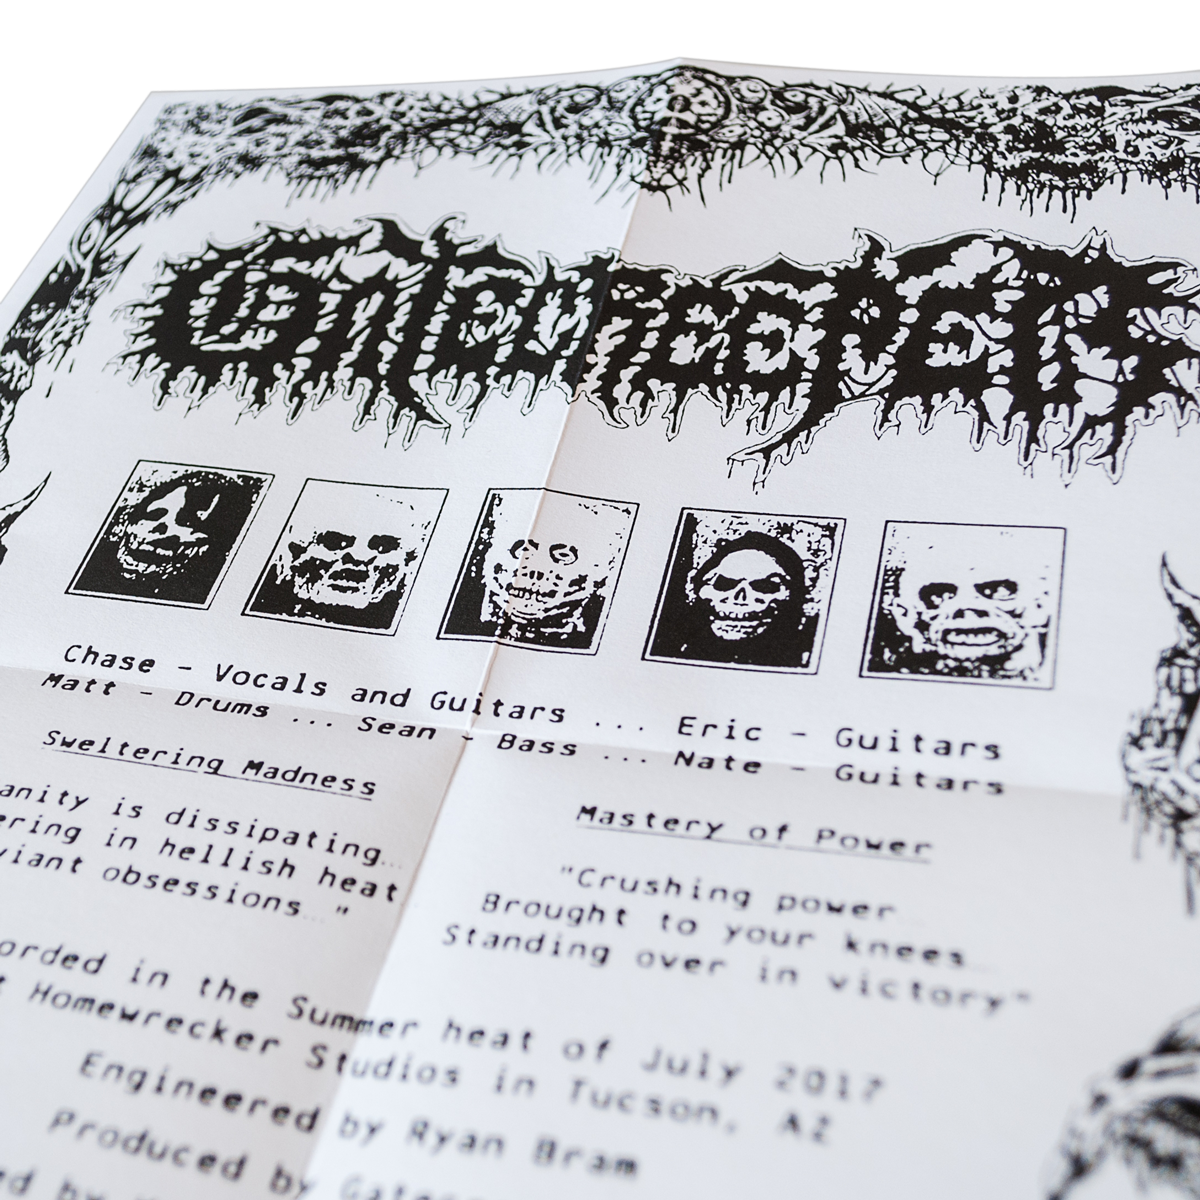 Gatecreeper
Chase - Vocals and Guitars ... Eric - Guitars
Matt - Drums ... Sean - Bass ... Nate - Guitars
Sweltering Madness
anity is dissipating...
ering in hellish heat
viant obsessions..."
Mastery of Power
"Crushing power...
Brought to your knees...
Standing over in victory"
orded in the Summer heat of July 2017
t Homewrecker Studios in Tucson, AZ
Engineered by Ryan Bram
Produced by Gatec
ed by